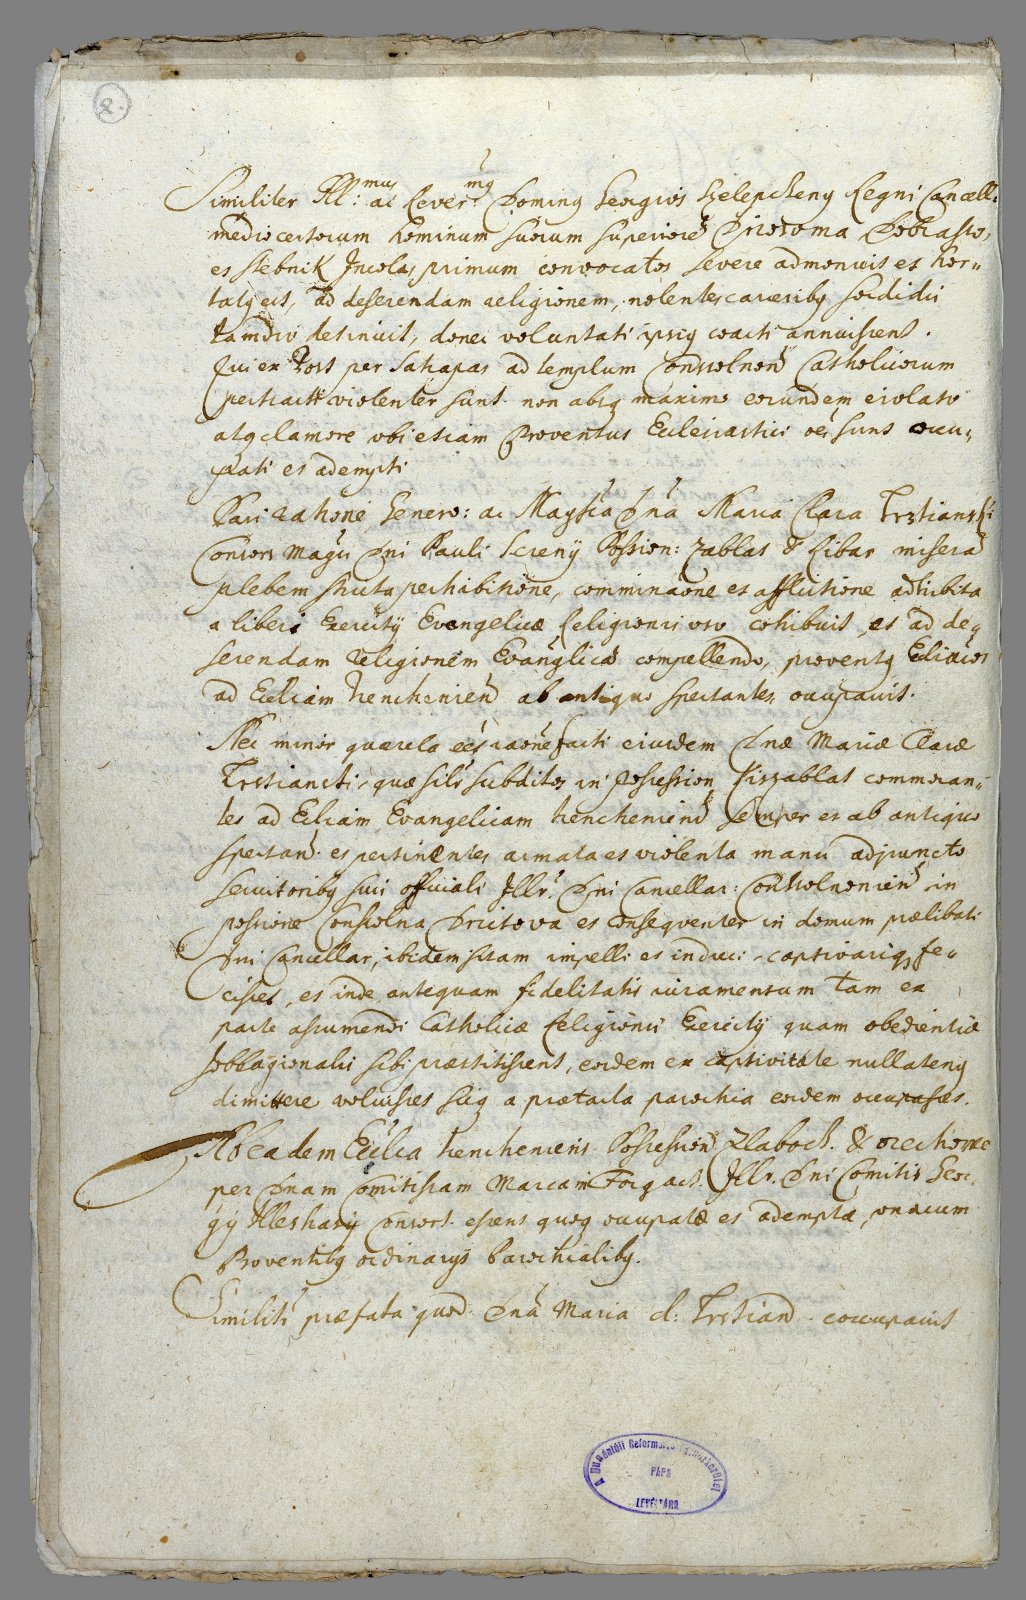 8.
Similiter Ill:mus ac Rever:mus Dominus Georgius Szelepcheny Regni Cancell:
medio certorum hominum suorum superiore Drietoma, Dobrasso,
et Stebnik Incolas, primum convocatos severe admonuit et hor-
tatus est, ad deserendam religionem, nolentes carceribus sordidis
tamdiu detinuit, donec voluntati ipsius coacti annuissent.
Qui ex post per Satrapas ad templum Catholicorum
pertracti violenter sunt non absque maximo eorundem eiulatu
atque clamore ubi etiam Proventus Ecclesiastici oes sunt occu-
pati et adempti
Pari ratione Genero: ac Magfica Dna Maria Clara Trstianski
Consors Magci Dni Pauli Sereny Possion: Zablat & Ribar miseram
plebem perhibitione, comminaone et afflictione adhibita
a libero Exercity Evangelicæ Religionis usu cohibuit, et ad de-
serendam religionem Evanglicam compellendo, proventus Ecliacos
ad Ecliam Trenchenien ab antiquo spectantes occupavit.
Nec minor quærela ees raone facti eiusdem Dnæ Mariæ Claræ
Trstiancki, quæ silr subditos in possession Kiszablat commoran-
tes ad Ecliam Evangelicam Trenchenien semper et ab antiquo
spectan. et pertinentes armata et violenta manu adjuncto
servitoribus suis officiali Illr. Dni Cancellar: in
possione Drietova et consequenter in domum prælibati
Dni Cancellar, ibidem sitam impelli et induci captivarique fe-
cisset, et inde antequam fidelitatis iuramentum tam ex
parte assumendi Catholicæ religionis Exercity quam obedientiæ
Jobbagionalis sibi præstitissent, eosdem ex captivitate nullatenus
dimittere voluisset sicque a prætacta parochia eosdem occupasset.
Ab eadem Ecclia Trenchiniens. Possession Zlaboch. & orechove
per Dnam Comitissam Mariam Forgach. Illr. Dni Comitis Geor-
gy Illeshazy Consort. essent quoque occupatæ et ademptæ, una cum
Proventibus ordinarys Parochialibus.
Similiter præfata quoque Dna Maria cl: Trstiand. occupavit
A Dunántúli Református Egyházkerület
PÁPA
LEVÉLTÁRA